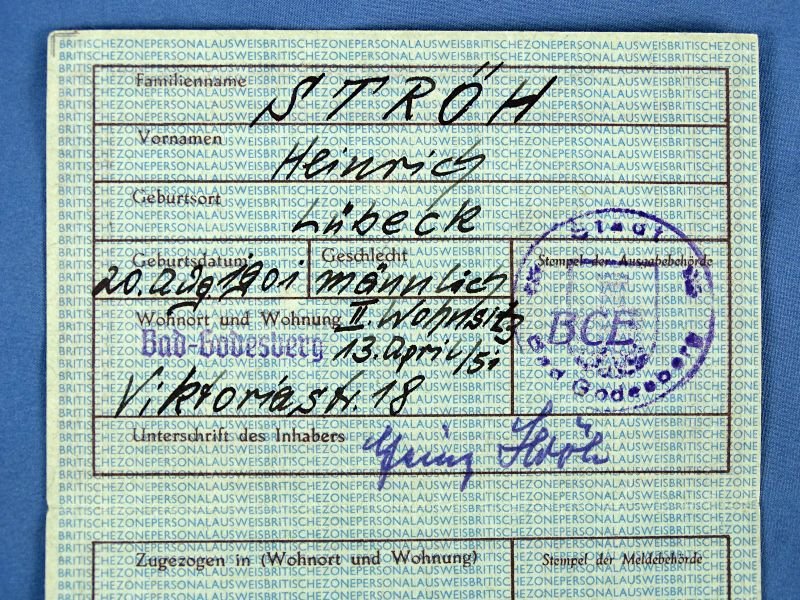 BRITISCHEZONEPERSONALAUSWEISBRITISCHEZONEPERSONALAUSWEISBRITISCHEZONE
Familienname
STRÖH
Vornamen
Heinrich
Geburtsort
Lübeck
Geburtsdatum Geschlecht Stempel der Ausgabebehörde
20. Aug 1901 männlich
Wohnort und Wohnung II. Wohnsitz
Bad-Godesberg 13. April 51
Viktoriastr. 18
Stadt
BCE
Bad Godesberg
Unterschrift des Inhabers Heinz Ströh
Zugezogen in (Wohnort und Wohnung) Stempel der Meldebehörde